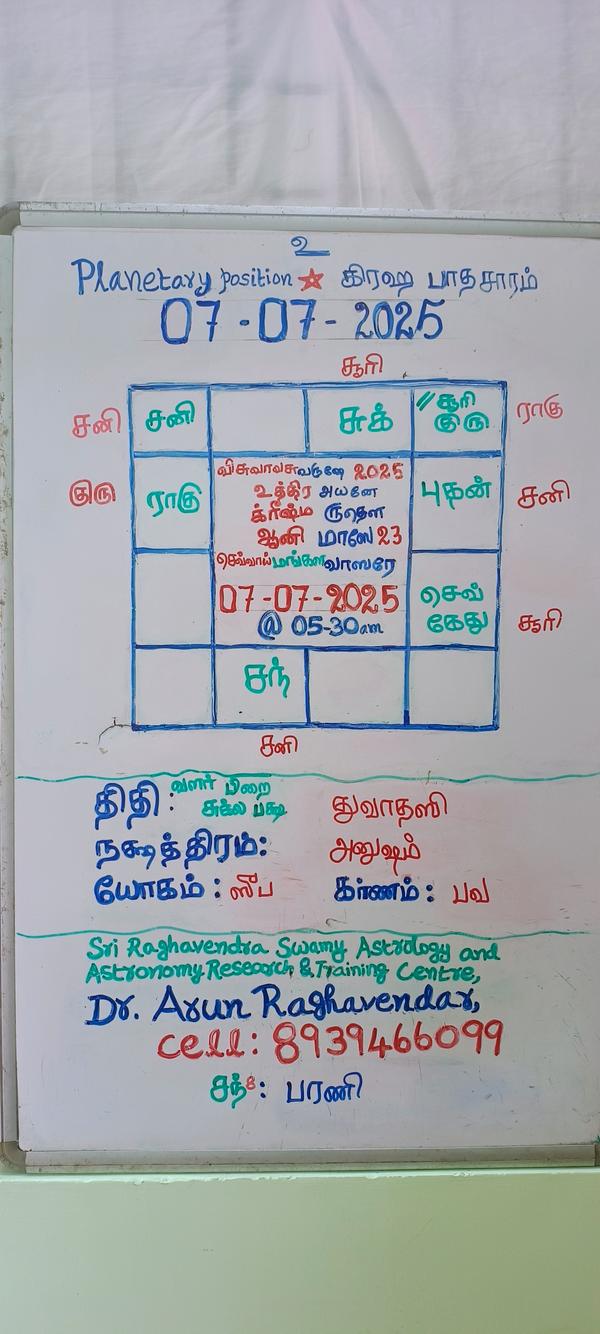 உ
Planetary position கிரஹ பாதசாரம்
07-07-2025
சூரி
சனி சனி சுக் // சூரி குரு ராகு
குரு ராகு புதன் சனி
விசுவாவசுவருஷே 2025
உத்திர அயனே
க்ரீஷ்ம ருதௌ
ஆனி மாஸே 23
செவ்வாய் மங்கள வாஸரே
07-07-2025
@ 05-30am
செவ் கேது சூரி
சந்
சனி
திதி: வளர் பிறை சுக்ல பக்ஷ துவாதஸி
நக்ஷத்திரம்: அனுஷம்
யோகம்: ஸுப கர்ணம்: பவ
Sri Raghavendra Swamy Astrology and
Astronomy Research & Training Centre,
Dr. Arun Raghavendar,
cell: 8939466099
சந்8: பரணி